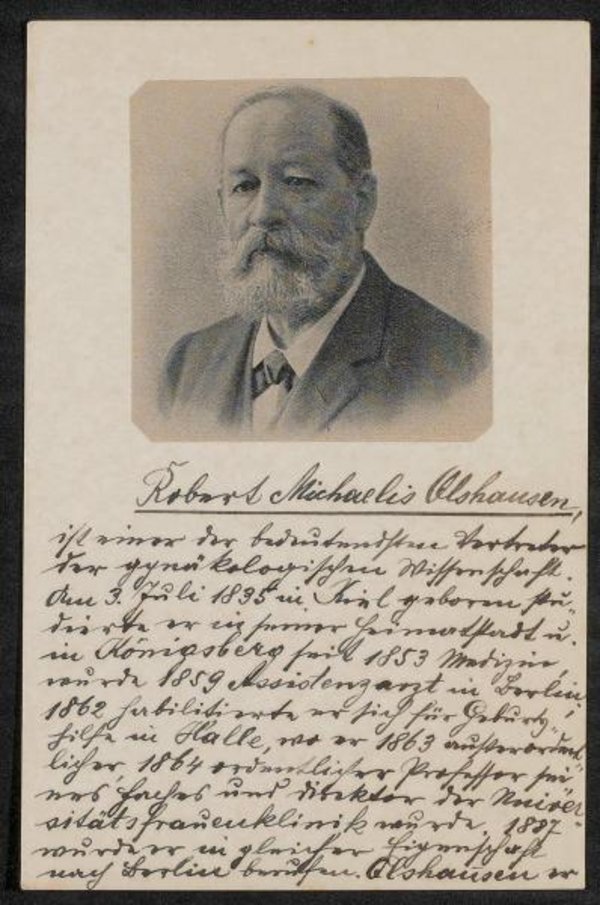 Robert Michaelis Olshausen,
ist einer der bedeutendsten Vertreter
der gynäkologischen Wissenschaft.
Am 3. Juli 1835 in Kiel geboren stu„
dierte er in seiner Heimatstadt u.
in Königsberg seit 1853 Medizin,
wurde 1859 Assistenzarzt in Berlin,
1862 habilitierte er sich für Geburts„
hilfe in Halle, wo er 1863 außerordent„
licher, 1864 ordentlicher Professor sei„
nes Faches und Direktor der Univer„
sitätsfrauenklinik wurde. 1887
wurde er in gleicher Eigenschaft
nach Berlin berufen. Olshausen er